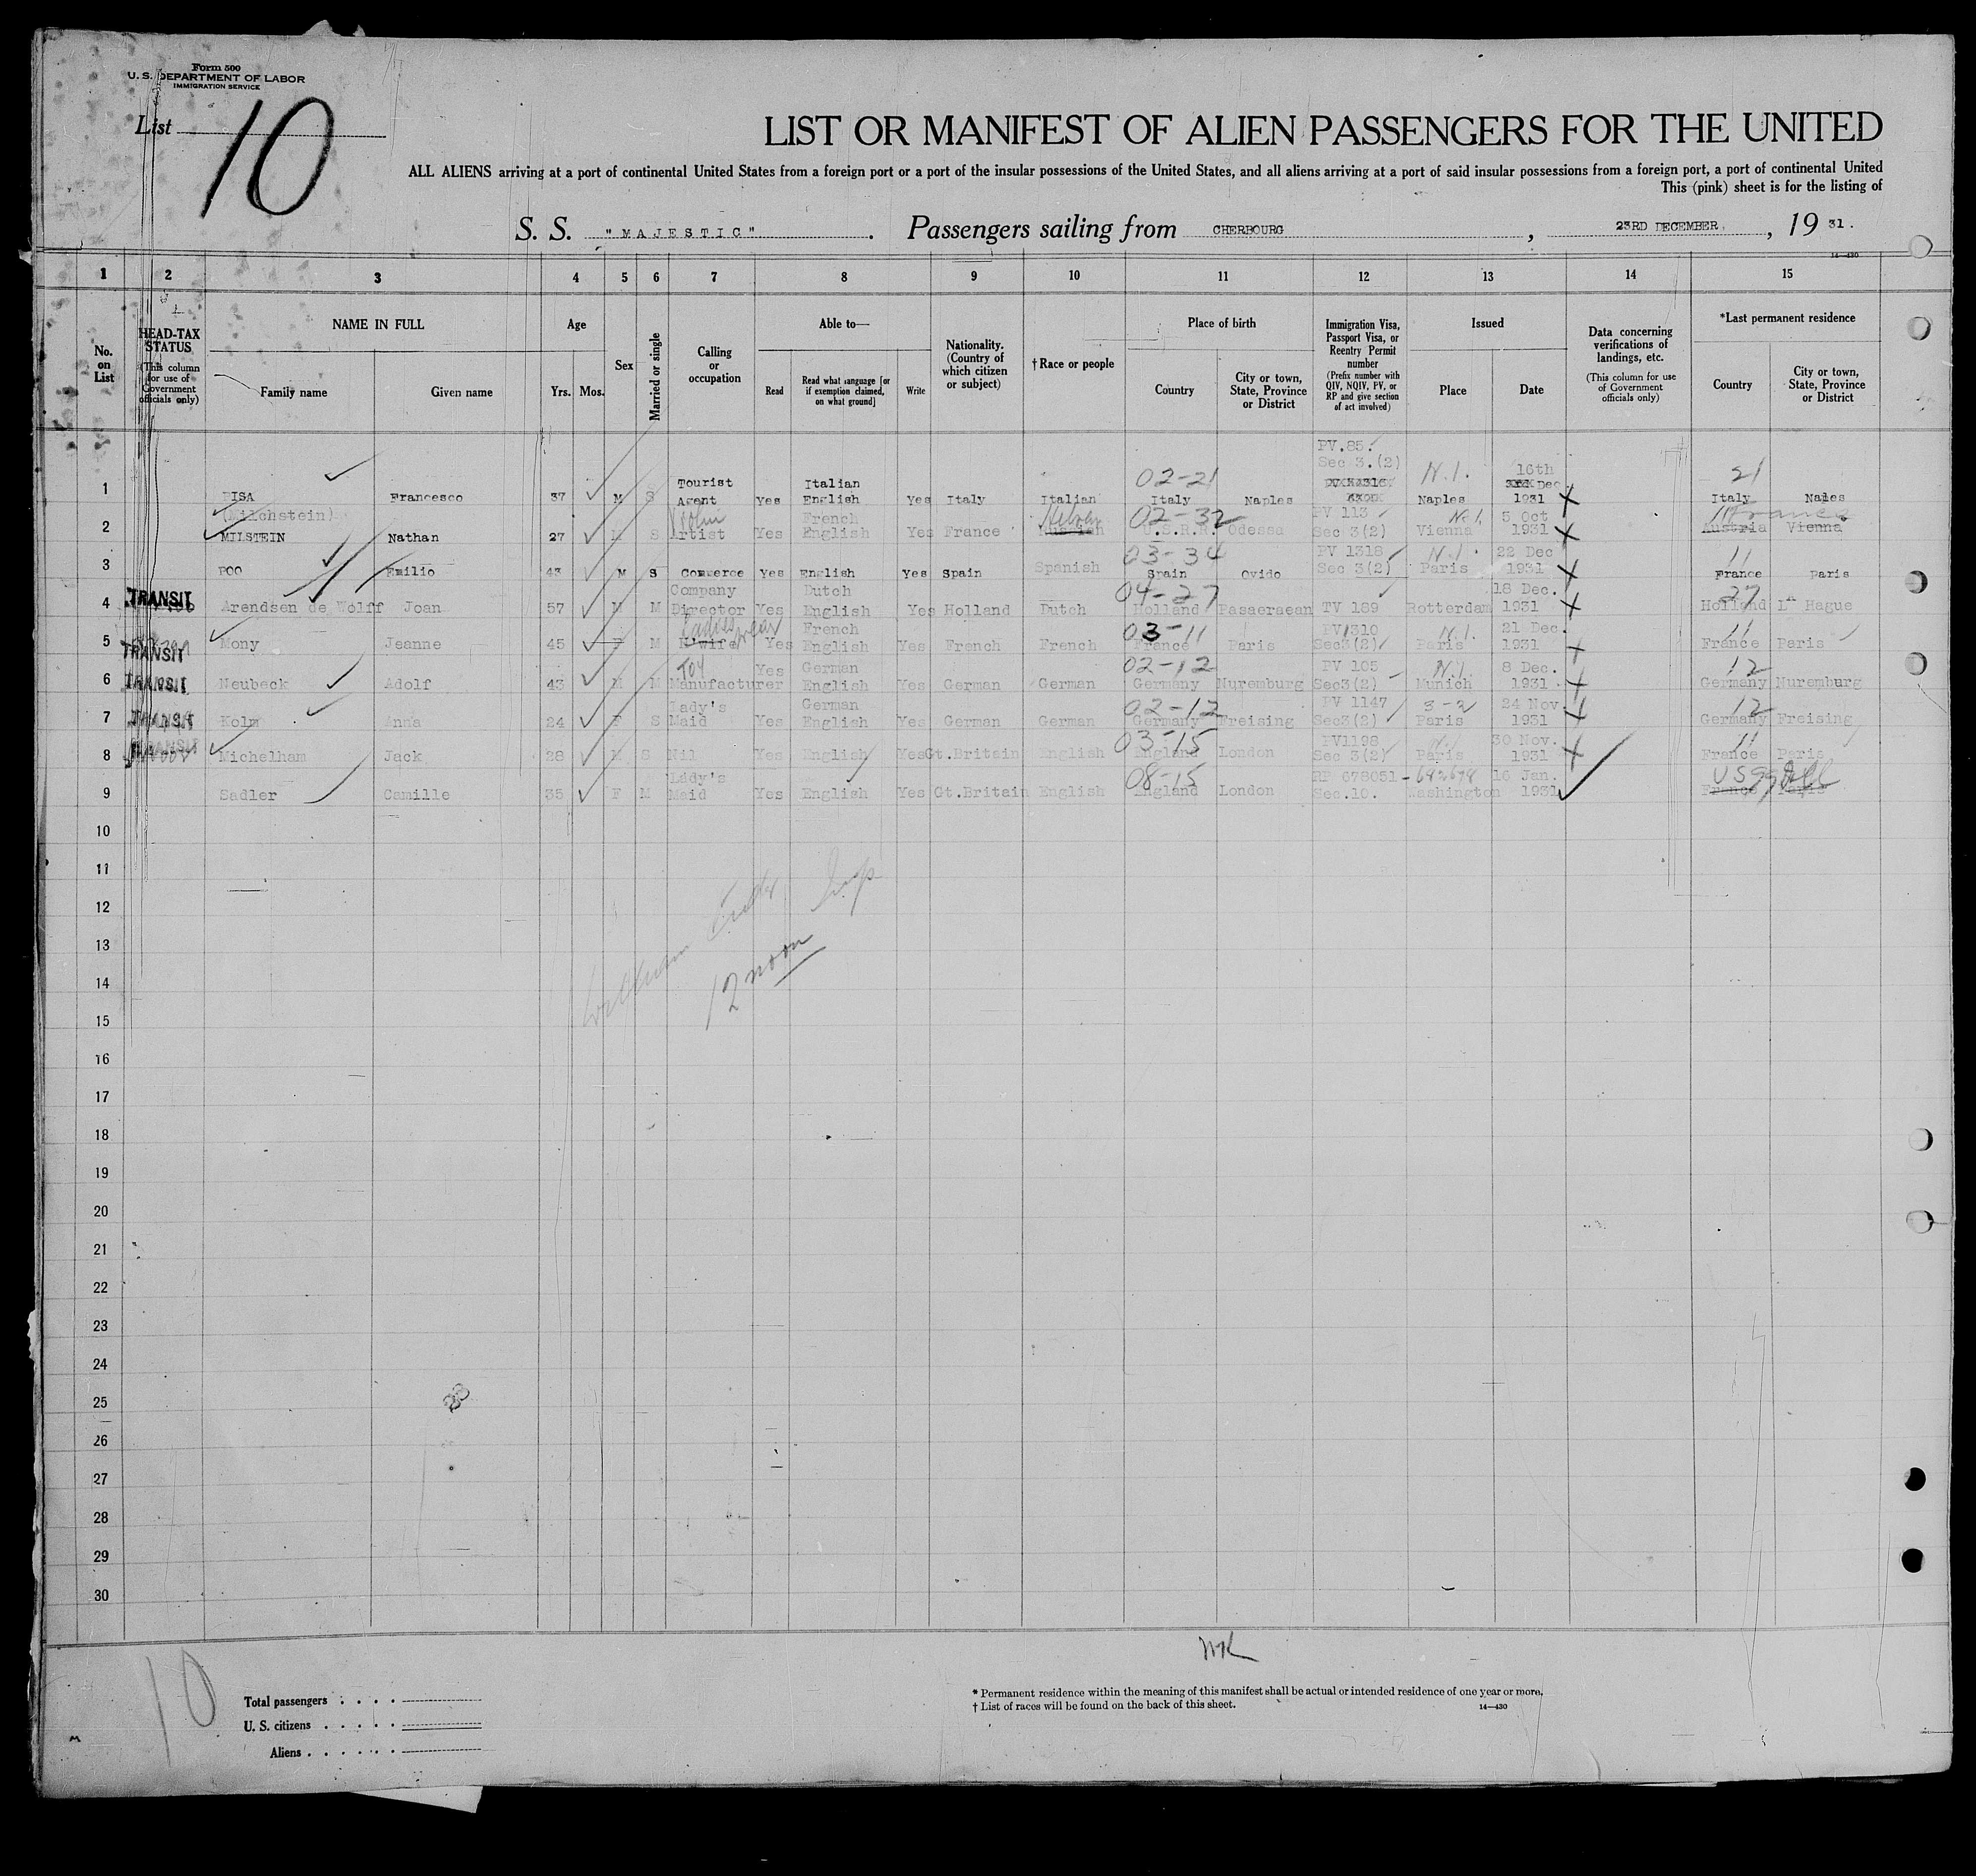 Form 500
U. S. DEPARTMENT OF LABOR
IMMIGRATION SERVICE
List 10
LIST OR MANIFEST OF ALIEN PASSENGERS FOR THE UNITED
ALL ALIENS arriving at a port of continental United States from a foreign port or a port of the insular possessions of the United States, and all aliens arriving at a port of said insular possessions from a foreign port, a port of continental United
This (pink) sheet is for the listing of
S. S. "MAJESTIC". Passengers sailing from CHERBOURG, 23RD DECEMBER, 19 31.
14—430
1 2 3 4 5 6 7 8 9 10 11 12 13 14 15
No. on List
HEAD-TAX STATUS (This column for use of Government officials only)
NAME IN FULL
Family name
Given name
Age
Yrs. Mos.
Sex
Married or single
Calling or occupation
Able to—
Read
Read what language [or if exemption claimed, on what ground]
Write
Nationality. (Country of which citizen or subject)
† Race or people
Place of birth
Country
City or town, State, Province or District
Immigration Visa, Passport Visa, or Reentry Permit number (Prefix number with QIV, NQIV, PV, or RP and give section of act involved)
Issued
Place
Date
Data concerning verifications of landings, etc. (This column for use of Government officials only)
*Last permanent residence
Country
City or town, State, Province or District
PV.85.
Sec 3.(2)
02-21 N.I. 16th 21
Tourist Italian Dec
1 PISA Francesco 37 M S Agent Yes English Yes Italy Italian Italy Naples Naples 1931 Italy Naples
(Milchstein) Violin French Hebrew 02-32 PV 113 N.I. 5 Oct 11 France
2 MILSTEIN Nathan 27 M S Artist Yes English Yes France U.S.R.R. Odessa Sec 3(2) Vienna 1931 Austria Vienna
03-34 PV 1318 N.I. 22 Dec 11
3 POO Emilio 43 M S Commerce Yes English Yes Spain Spanish Spain Ovido Sec 3(2) Paris 1931 France Paris
TRANSIT Company Dutch 04-27 18 Dec. 27
4 Arendsen de Wolff Joan 57 M M Director Yes English Yes Holland Dutch Holland Pasaeraean TV 189 Rotterdam 1931 Holland La Hague
Ladies wear French 03-11 PV1310 N.I. 21 Dec. 11
5 TRANSIT Mony Jeanne 45 F M H'wife Yes English Yes French French France Paris Sec3(2) Paris 1931 France Paris
Toy Yes German 02-12 PV 105 N.I. 8 Dec. 12
6 TRANSIT Neubeck Adolf 43 M M Manufacturer English Yes German German Germany Nuremburg Sec3(2) Munich 1931 Germany Nuremburg
Lady's German 02-12 PV 1147 3-2 24 Nov 12
7 TRANSIT Kolm Anna 24 F S Maid Yes English Yes German German Germany Freising Sec3(2) Paris 1931 Germany Freising
TRANSIT 03-15 PV1198 30 Nov. 11
8 Michelham Jack 28 M S Nil Yes English Yes Gt.Britain English England London Sec 3(2) Paris 1931 France Paris
Lady's 08-15 RP 678051 - 682678 16 Jan. US
9 Sadler Camille 35 F M Maid Yes English Yes Gt.Britain English England London Sec.10. Washington 1931 France Paris
10
11
12
13
12 noon
14
15
16
17
18
19
20
21
22
23
24
25
26
27
28
29
30
10
Total passengers
U. S. citizens
Aliens
* Permanent residence within the meaning of this manifest shall be actual or intended residence of one year or more.
† List of races will be found on the back of this sheet.
14—430